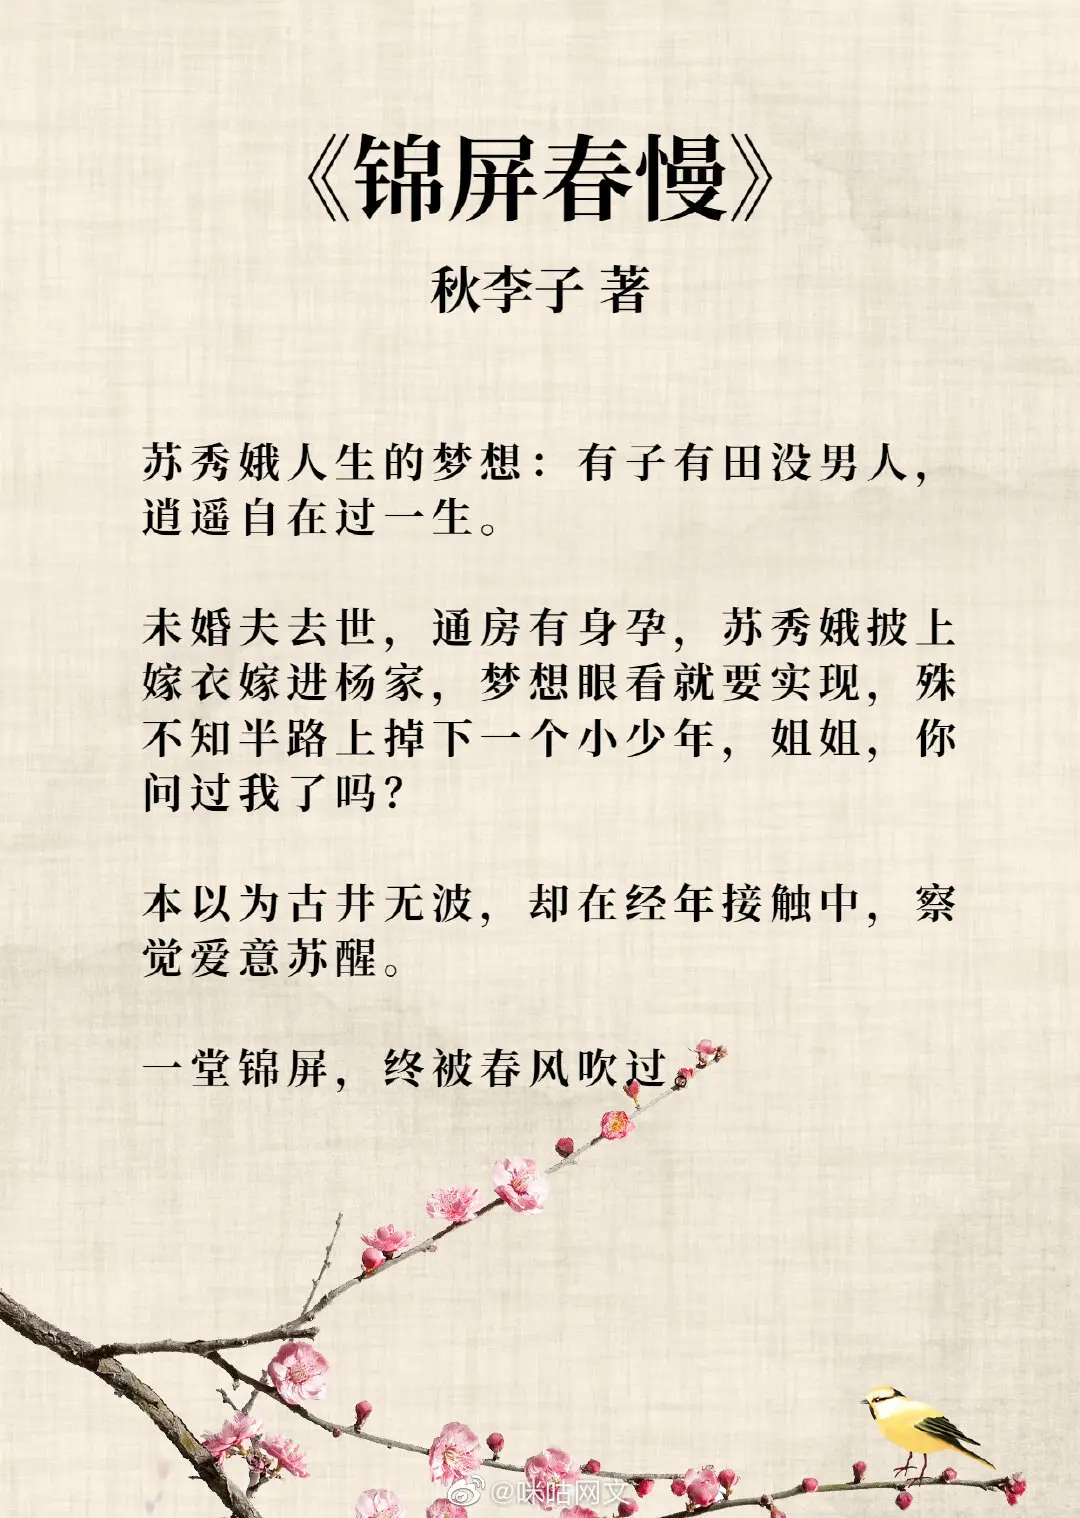 《锦屏春慢》
秋李子 著
苏秀娥人生的梦想：有子有田没男人，
逍遥自在过一生。
未婚夫去世，通房有身孕，苏秀娥披上
嫁衣嫁进杨家，梦想眼看就要实现，殊
不知半路上掉下一个小少年，姐姐，你
问过我了吗？
本以为古井无波，却在经年接触中，察
觉爱意苏醒。
一堂锦屏，终被春风吹过。
@咪咕网文